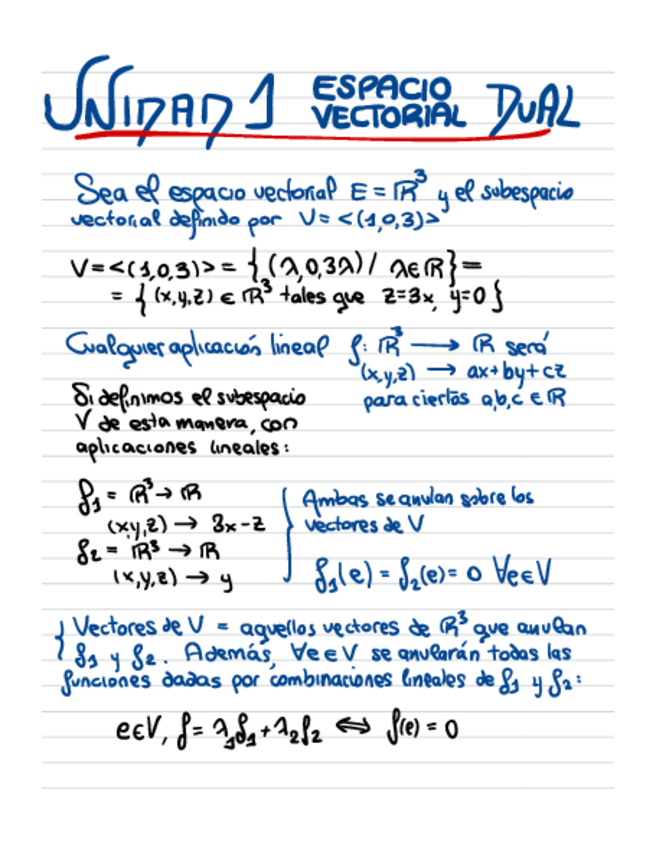 UNIDAD 1 ESPACIO VECTORIAL DUAL
Sea el espacio vectorial E = ℝ³ y el subespacio
vectorial definido por V = <(1,0,3)>
V = <(1,0,3)> = { (λ,0,3λ) / λ∈ℝ } =
= { (x,y,z) ∈ ℝ³ tales que z=3x, y=0 }
Cualquier aplicación lineal f: ℝ³ → ℝ será
(x,y,z) → ax+by+cz
para ciertos a,b,c ∈ ℝ
Si definimos el subespacio
V de esta manera, con
aplicaciones lineales:
f₁ = ℝ³ → ℝ
(x,y,z) → 3x-z
f₂ = ℝ³ → ℝ
(x,y,z) → y
Ambas se anulan sobre los
vectores de V
f₁(e) = f₂(e) = 0 ∀e∈V
Vectores de V = aquellos vectores de ℝ³ que anulan
f₁ y f₂. Además, ∀e∈V se anularán todas las
funciones dadas por combinaciones lineales de f₁ y f₂:
e∈V, f = λ₁f₁+λ₂f₂ ⇔ f(e) = 0